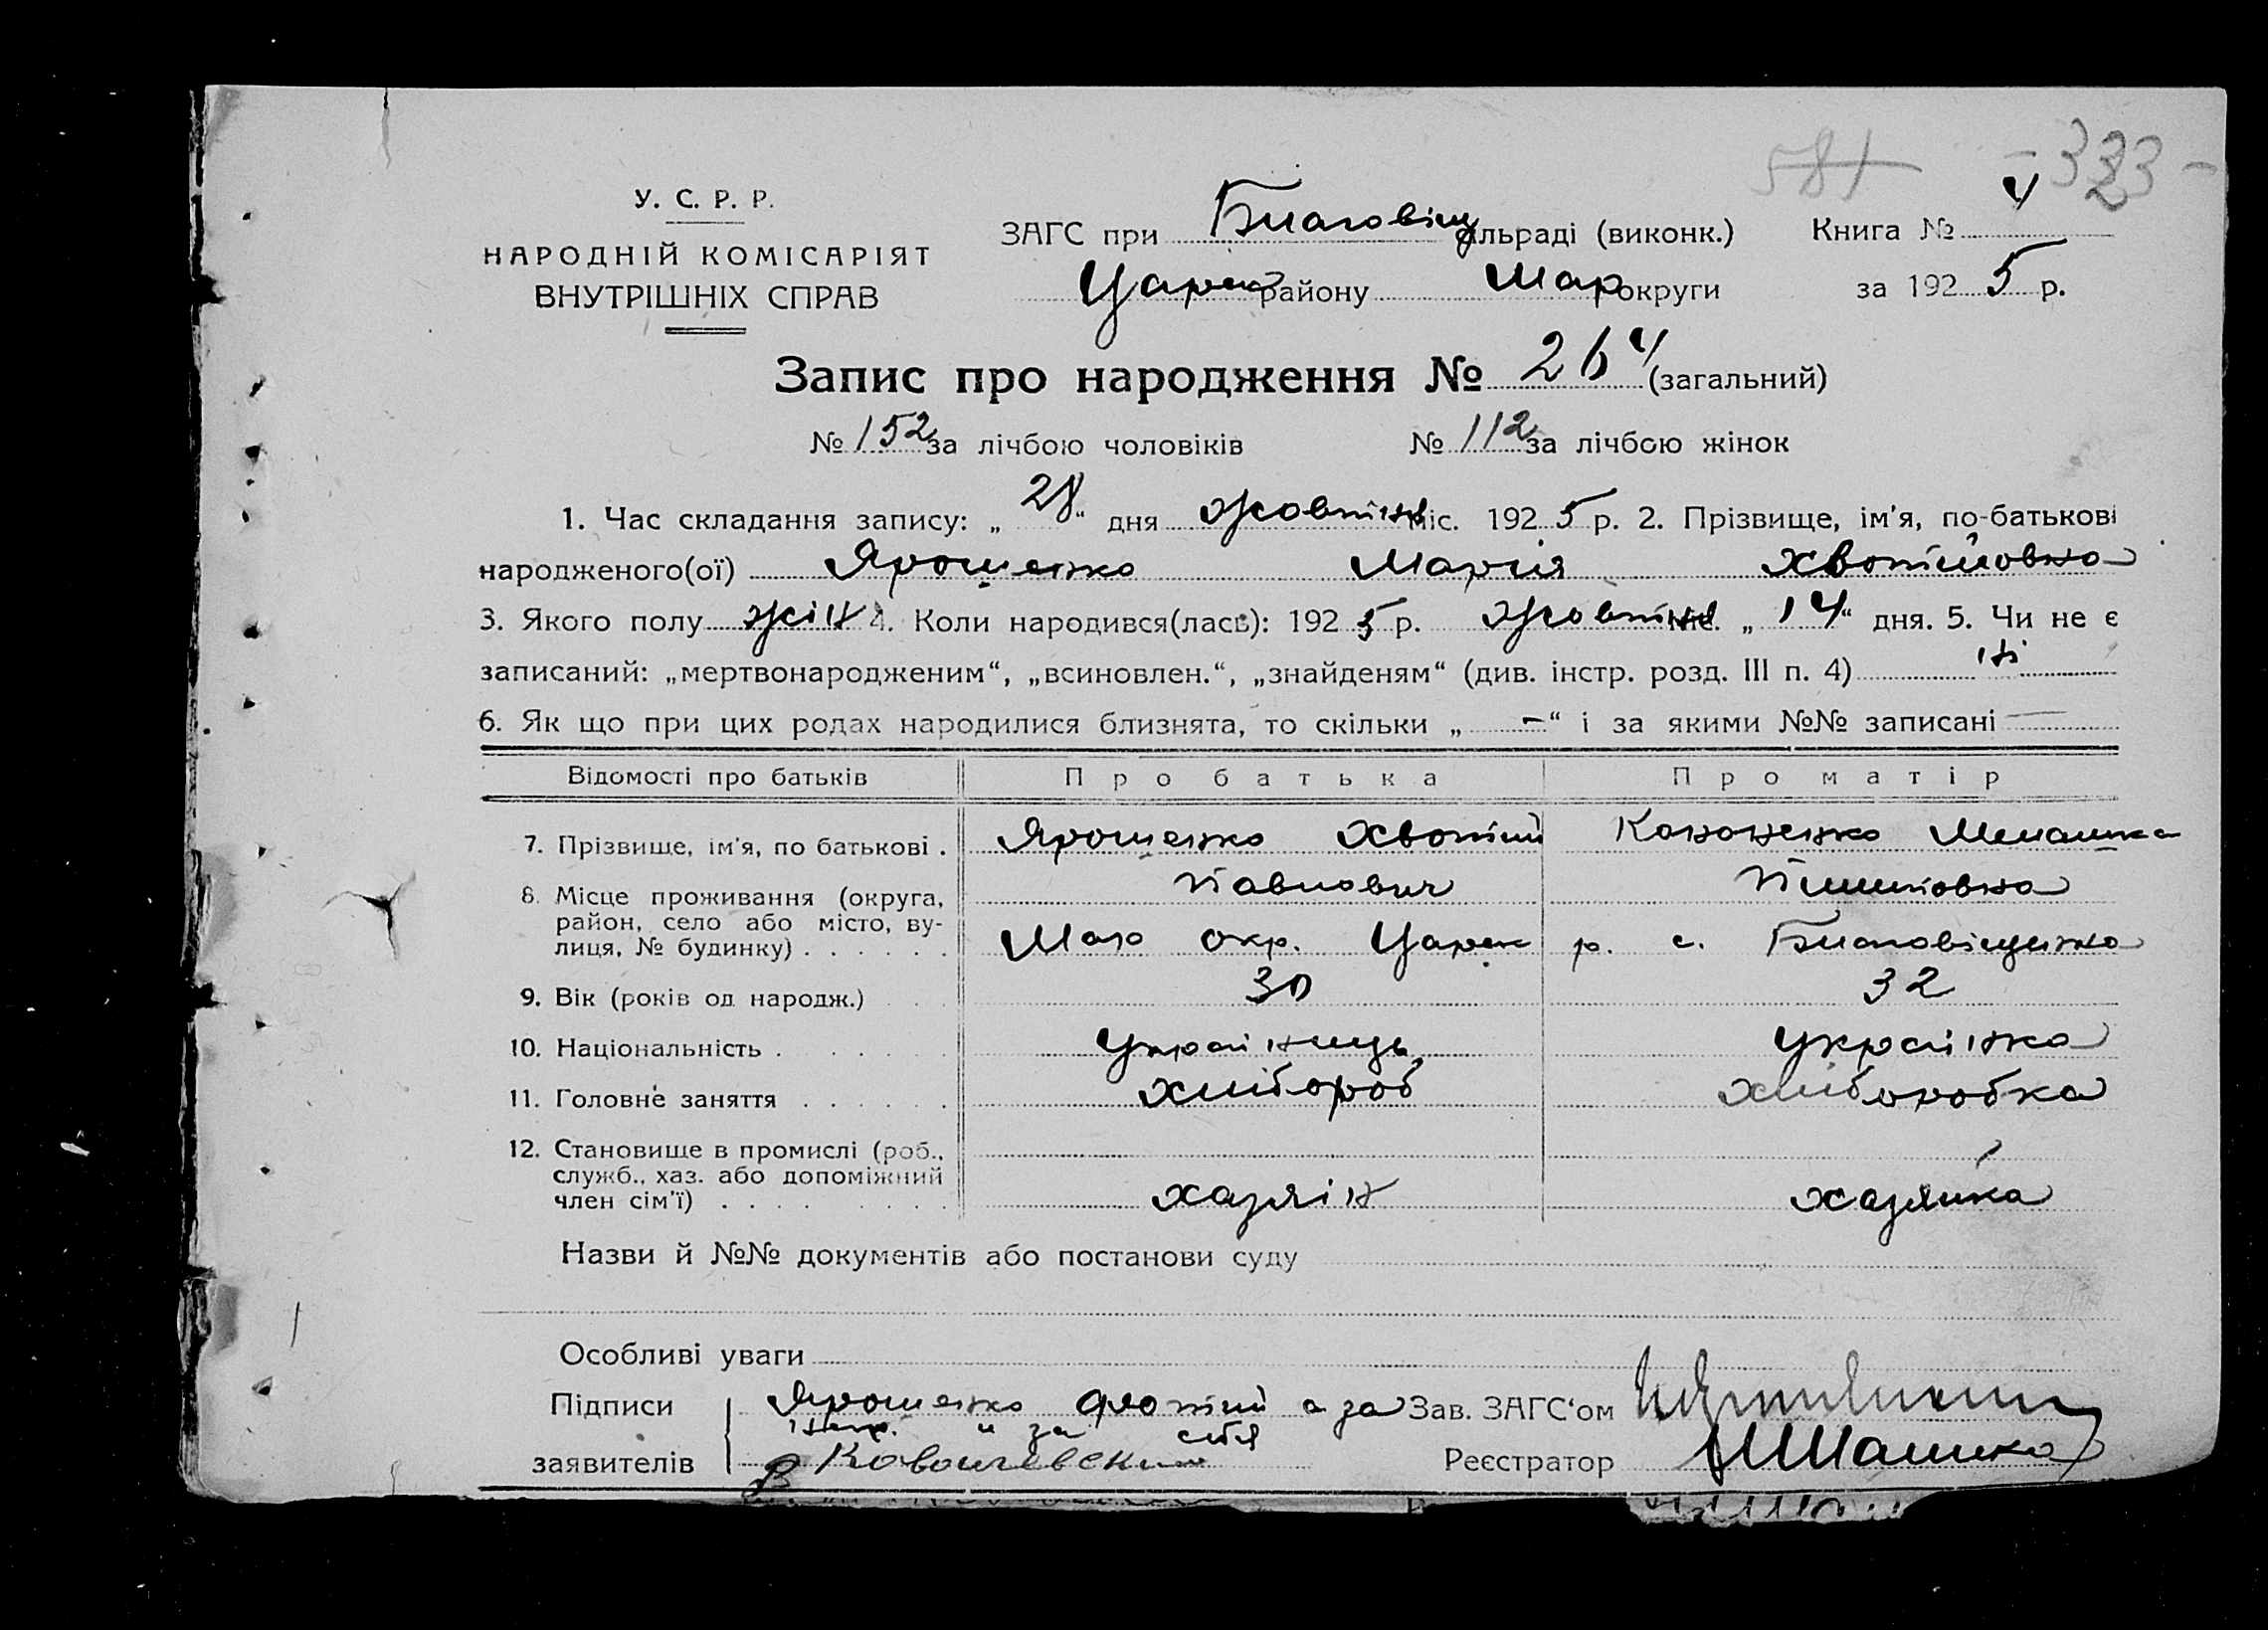 581 - 323 -
У. С. Р. Р.
НАРОДНІЙ КОМІСАРІЯТ
ВНУТРІШНІХ СПРАВ
ЗАГС при Благовіщ ільраді (виконк.) Книга № 4
Царек району Мар округи за 1925 р.
Запис про народження № 264 (загальний)
№ 152 за лічбою чоловіків № 112 за лічбою жінок
1. Час складання запису: „28“ дня жовтня міс. 1925 р. 2. Прізвище, ім'я, по-батькові
народженого(ої) Ярошенко Марія Хвотіївовна
3. Якого полу жін 4. Коли народився(лась): 1925 р. жовтня міс. „14“ дня. 5. Чи не є
записаний: „мертвонародженим“, „всиновлен.“, „знайденям“ (див. інстр. розд. III п. 4) ні
6. Як що при цих родах народилися близнята, то скільки „ - “ і за якими №№ записані —
Відомості про батьків Про батька Про матір
7. Прізвище, ім'я, по батькові . Ярошенко Хвотій Кононенко Мелашка
Павлович Пилиповна
8. Місце проживання (округа,
район, село або місто, ву-
лиця, № будинку) . . . . . . Мар окр. Царек р. с. Благовіщенка
9. Вік (років од народж.) . . . 30 32
10. Національність . . . . . . Українець Українка
11. Головне заняття . . . . . . хлібороб хліборобка
12. Становище в промислі (роб.,
служб., хаз. або допоміжний
член сім'ї) . . . . . . . . хазяін хазяйка
Назви й №№ документів або постанови суду
Особливі уваги
Підписи Ярошенко Фотій а за Зав. ЗАГС'ом
непр. и за себя
заявителів Реєстратор